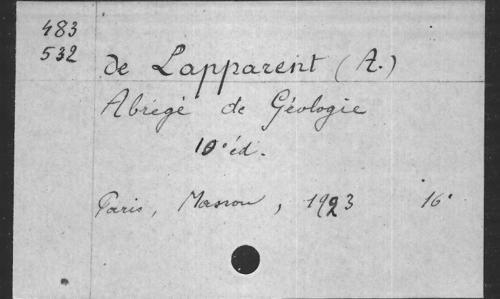 483
532
de Lapparent (A.)
Abrégé de Géologie
10e éd.
Paris, Masson, 1923 16°